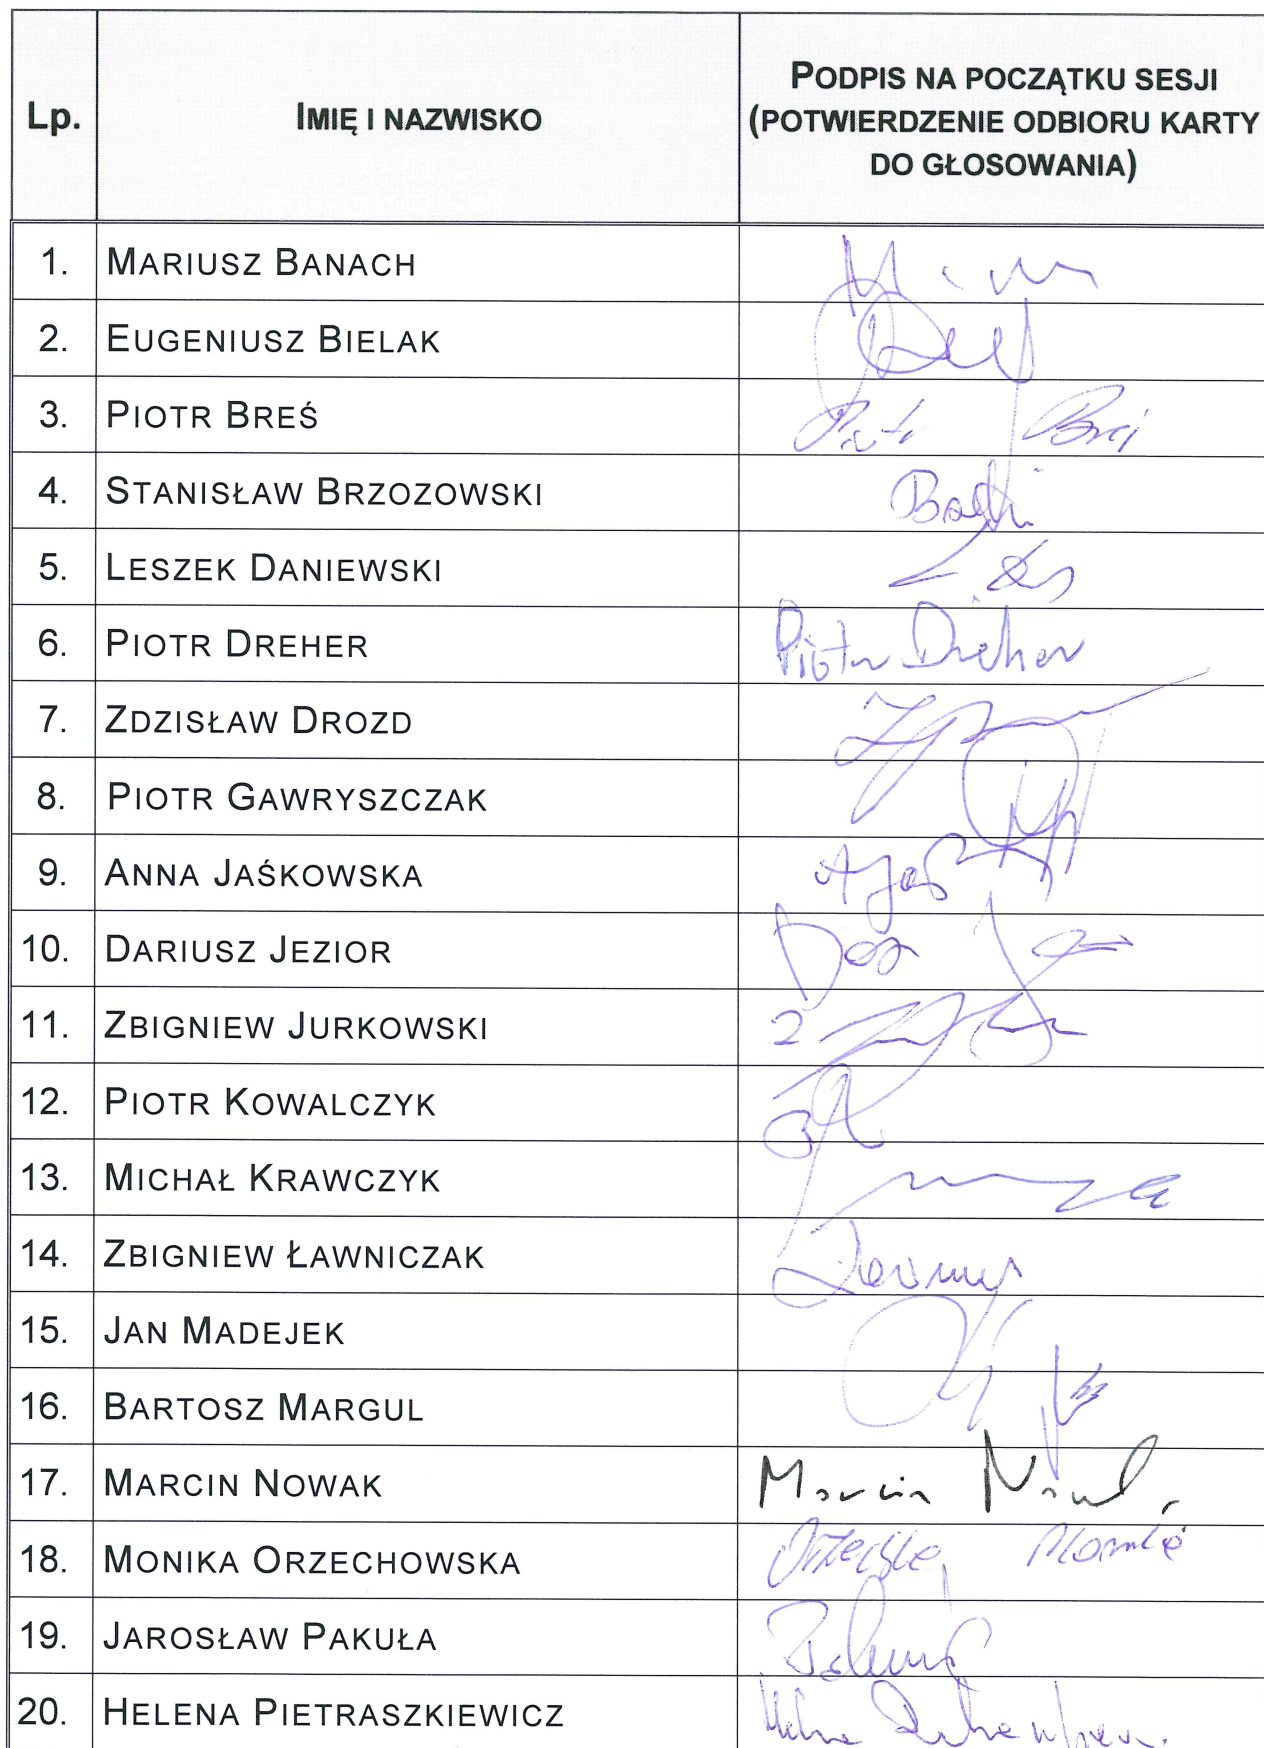 Lp.
IMIĘ I NAZWISKO
PODPIS NA POCZĄTKU SESJI
(POTWIERDZENIE ODBIORU KARTY
DO GŁOSOWANIA)
1. MARIUSZ BANACH
2. EUGENIUSZ BIELAK
3. PIOTR BREŚ
4. STANISŁAW BRZOZOWSKI
5. LESZEK DANIEWSKI
6. PIOTR DREHER Piotr Dreher
7. ZDZISŁAW DROZD
8. PIOTR GAWRYSZCZAK
9. ANNA JAŚKOWSKA
10. DARIUSZ JEZIOR
11. ZBIGNIEW JURKOWSKI
12. PIOTR KOWALCZYK
13. MICHAŁ KRAWCZYK
14. ZBIGNIEW ŁAWNICZAK
15. JAN MADEJEK
16. BARTOSZ MARGUL
17. MARCIN NOWAK Marcin Nowak
18. MONIKA ORZECHOWSKA
19. JAROSŁAW PAKUŁA
20. HELENA PIETRASZKIEWICZ